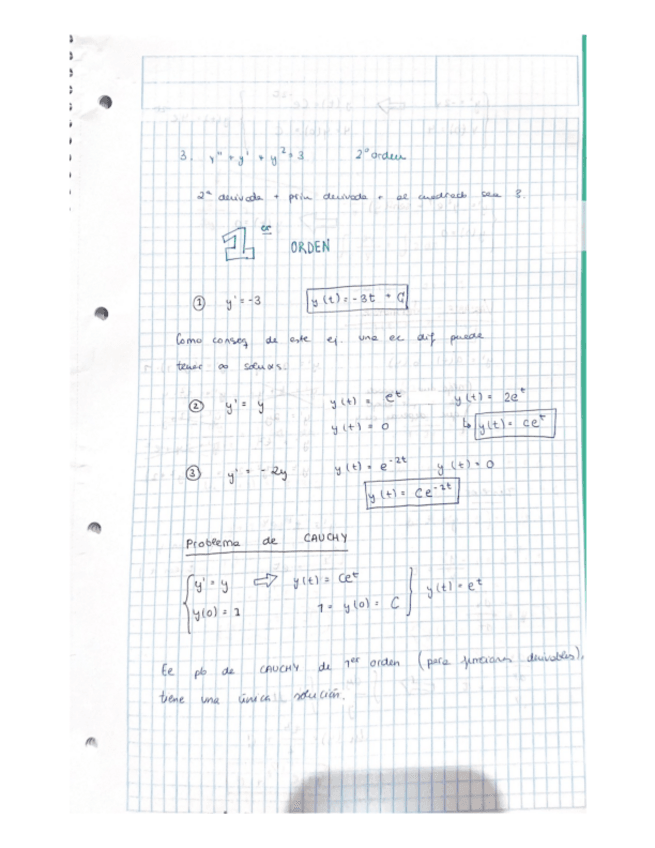 3. y'' + y' + y² = 3 2º orden
2ª derivada + prim derivada + al cuadrado sea 3.
1er ORDEN
① y' = -3 y(t) = -3t + C
Como conseq de este ej. una ec dif puede
tener ∞ soluxs.
② y' = y y(t) = e^t y(t) = 2e^t
y(t) = 0 ↳ y(t) = ce^t
③ y' = -2y y(t) = e^-2t y(t) = 0
y(t) = Ce^-2t
Problema de CAUCHY
y' = y ⇒ y(t) = Ce^t
y(0) = 1 1 = y(0) = C } y(t) = e^t
El pb de CAUCHY de 1er orden (para funciones derivables),
tiene una única solución.